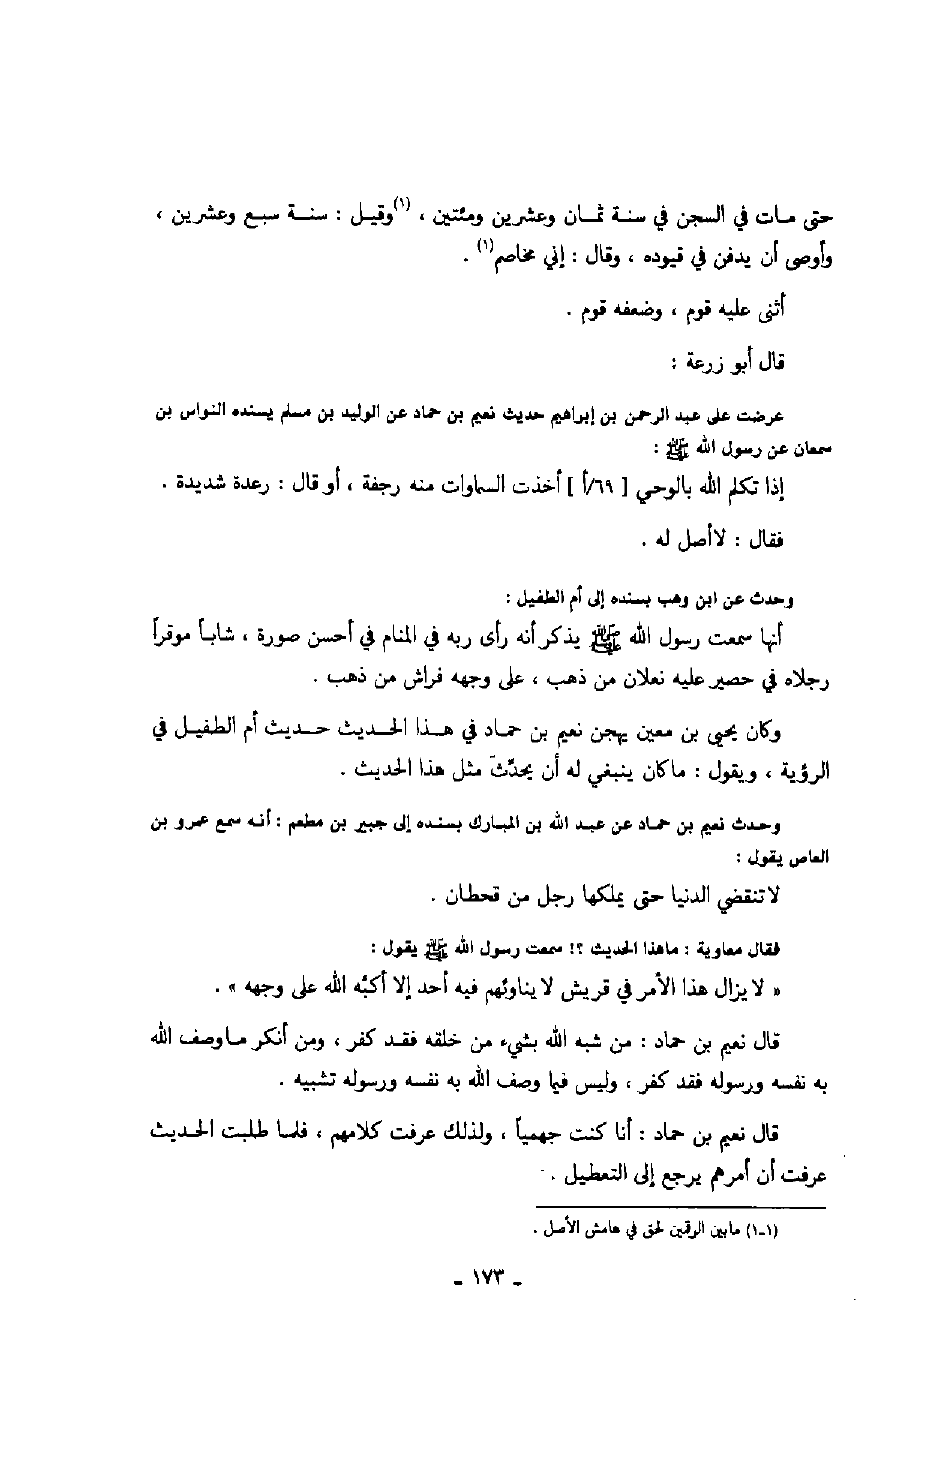 حتى مات في السجن في سنة ثمان وعشرين ومئتين ، (١)وقيل : سنة سبع وعشرين ،
وأوصى أن يدفن في قيوده ، وقال : إني مخاصم(١) .
أثنى عليه قوم ، وضعفه قوم .
قال أبو زرعة :
عرضت على عبد الرحمن بن إبراهيم حديث نعيم بن حماد عن الوليد بن مسلم يسنده النواس بن
سمعان عن رسول الله ﷺ :
إذا تكلم الله بالوحي [ ٦٩/أ ] أخذت السماوات منه رجفة ، أو قال : رعدة شديدة .
فقال : لاأصل له .
وحدث عن ابن وهب بسنده إلى أم الطفيل :
أنها سمعت رسول الله ﷺ يذكر أنه رأى ربه في المنام في أحسن صورة ، شاباً موقراً
رجلاه في حصير عليه نعلان من ذهب ، على وجهه فراش من ذهب .
وكان يحيى بن معين يهجن نعيم بن حماد في هذا الحديث حديث أم الطفيل في
الرؤية ، ويقول : ماكان ينبغي له أن يحدّثَ مثل هذا الحديث .
وحدث نعيم بن حماد عن عبد الله بن المبارك بسنده إلى جبير بن مطعم : أنه سمع عمرو بن
العاص يقول :
لاتنقضي الدنيا حتى يملكها رجل من قحطان .
فقال معاوية : ماهذا الحديث ؟! سمعت رسول الله ﷺ يقول :
« لا يزال هذا الأمر في قريش لا يناوئهم فيه أحد إلا أكبّه الله على وجهه » .
قال نعيم بن حماد : من شبه الله بشيء من خلقه فقد كفر ، ومن أنكر ماوصف الله
به نفسه ورسوله فقد كفر ، وليس فيما وصف الله به نفسه ورسوله تشبيه .
قال نعيم بن حماد : أنا كنت جهمياً ، ولذلك عرفت كلامهم ، فلما طلبت الحديث
عرفت أن أمرهم يرجع إلى التعطيل .
(١-١) مابين الرقمين لحق في هامش الأصل .
- ١٧٣ -